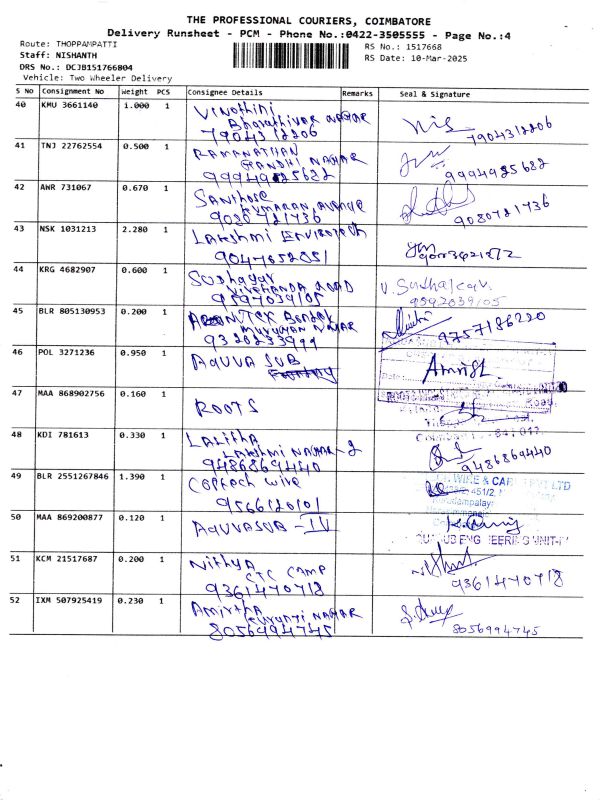 THE PROFESSIONAL COURIERS, COIMBATORE
Delivery Runsheet - PCM - Phone No.:0422-3505555 - Page No.:4
Route: THOPPAMPATTI
RS No.: 1517668
Staff: NISHANTH
RS Date: 10-Mar-2025
DRS No.: DCJB151766804
Vehicle: Two Wheeler Delivery
S No Consignment No Weight PCS Consignee Details Remarks Seal & Signature
40 KMU 3661140 1.000 1 Vinothini
Bharathivar nagar
7904312206 7904312206
41 TNJ 22762554 0.500 1 Ramanathan
Gandhi nagar
9994985682 9994985682
42 AWR 731067 0.670 1 Santhose
Kumaran avanue
9080721736 9080721736
43 NSK 1031213 2.280 1 Lakshmi Envirotech
9047652051
44 KRG 4682907 0.600 1 Sudhagar
Vivekanda Road V. Sudhakar
9597039105 9592039105
45 BLR 805130953 0.200 1
Murugan nagar
9320233999 9757186220
46 POL 3271236 0.950 1 Aquva SUB
47 MAA 868902756 0.160 1 ROOTS
48 KDI 781613 0.330 1 Lalitha
Lakshmi nagar-2
9486869440 9486869440
49 BLR 2551267846 1.390 1 Coptech wire
9566120101
WIRE & CAB PVT LTD
451/2,
50 MAA 869200877 0.120 1 AquvaSUB-IV
ENG EERING UNIT-IV
51 KCM 21517687 0.200 1 Nithya
CTC Camp
9361470718 9361470718
52 IXM 507925419 0.230 1 Amirtha
nagar
8056994745 8056994745